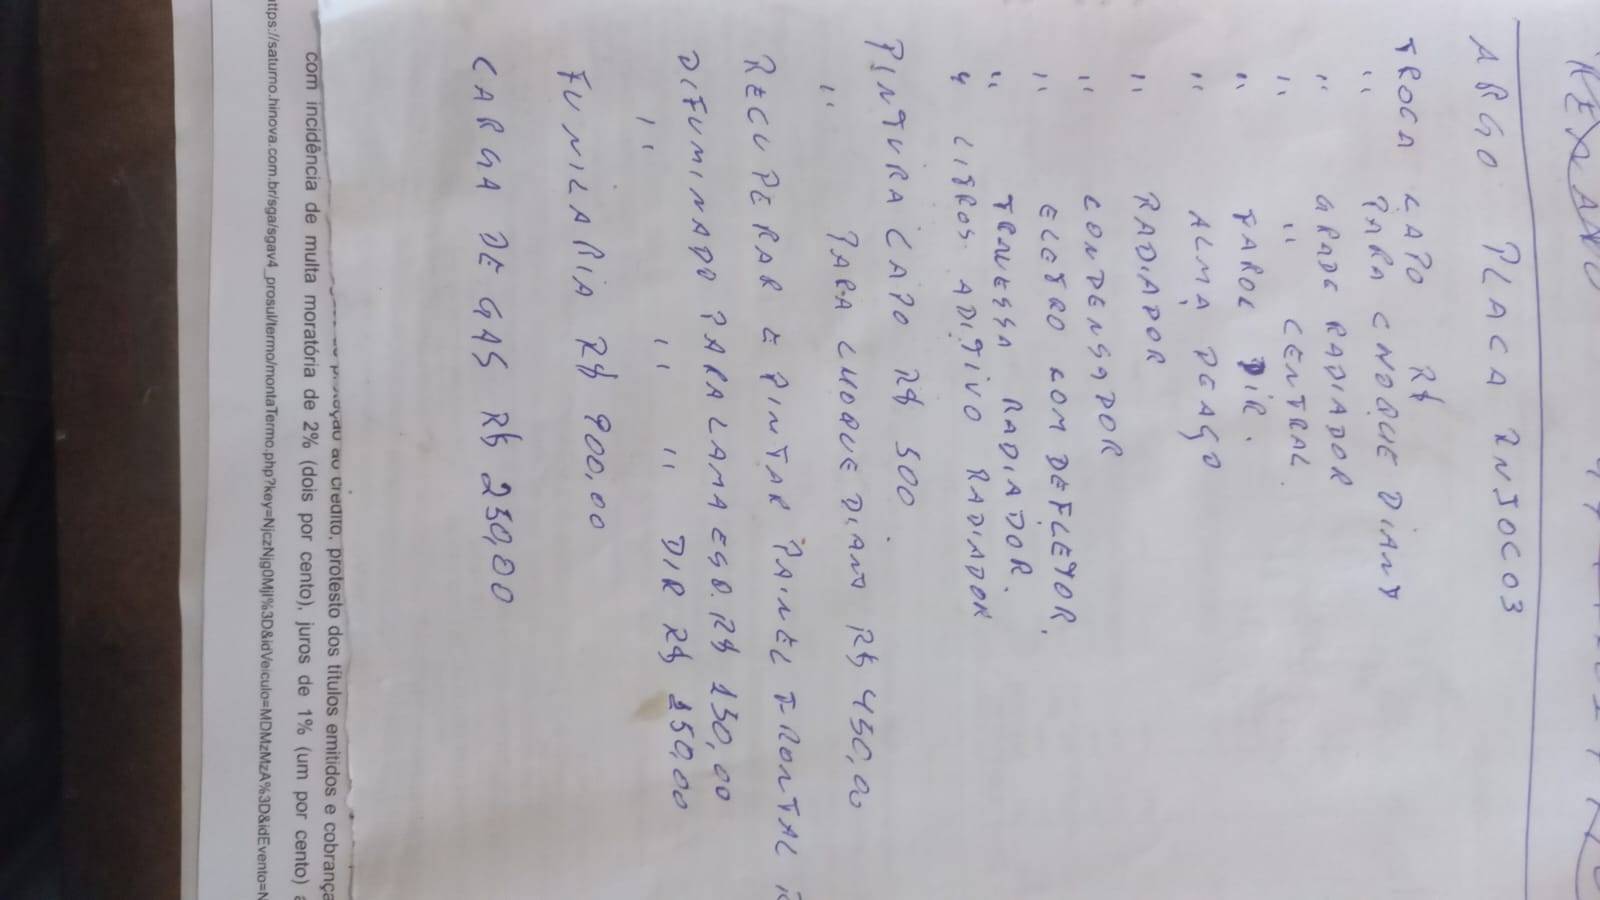 ARGO PLACA RNJOC03
TROCA CAPO R$
" PARA CHOQUE DIANT
" GRADE RADIADOR
" " CENTRAL
" FAROL DIR.
" ALMA DE AÇO
" RADIADOR
" CONDENSADOR
" ELETRO COM DEFLETOR.
" TRAVESSA RADIADOR.
4 LITROS ADITIVO RADIADOR
PINTURA CAPO R$ 500
" PARA CHOQUE DIANT R$ 450,00
RECUPERAR E PINTAR PAINEL FRONTAL
DIFUMINADO PARALAMA ESQ. R$ 150,00
" " " DIR R$ 150,00
FUNILARIA R$ 900,00
CARGA DE GAS R$ 250,00
crédito, protesto dos títulos emitidos e cobrança
com incidência de multa moratória de 2% (dois por cento), juros de 1% (um por cento)
ttps://saturno.hinova.com.br/sga/sgav4_prosul/termo/montaTermo.php?key=NjczNjg0MjI%3D&idVeiculo=MDMzMzA%3D&idEvento=N